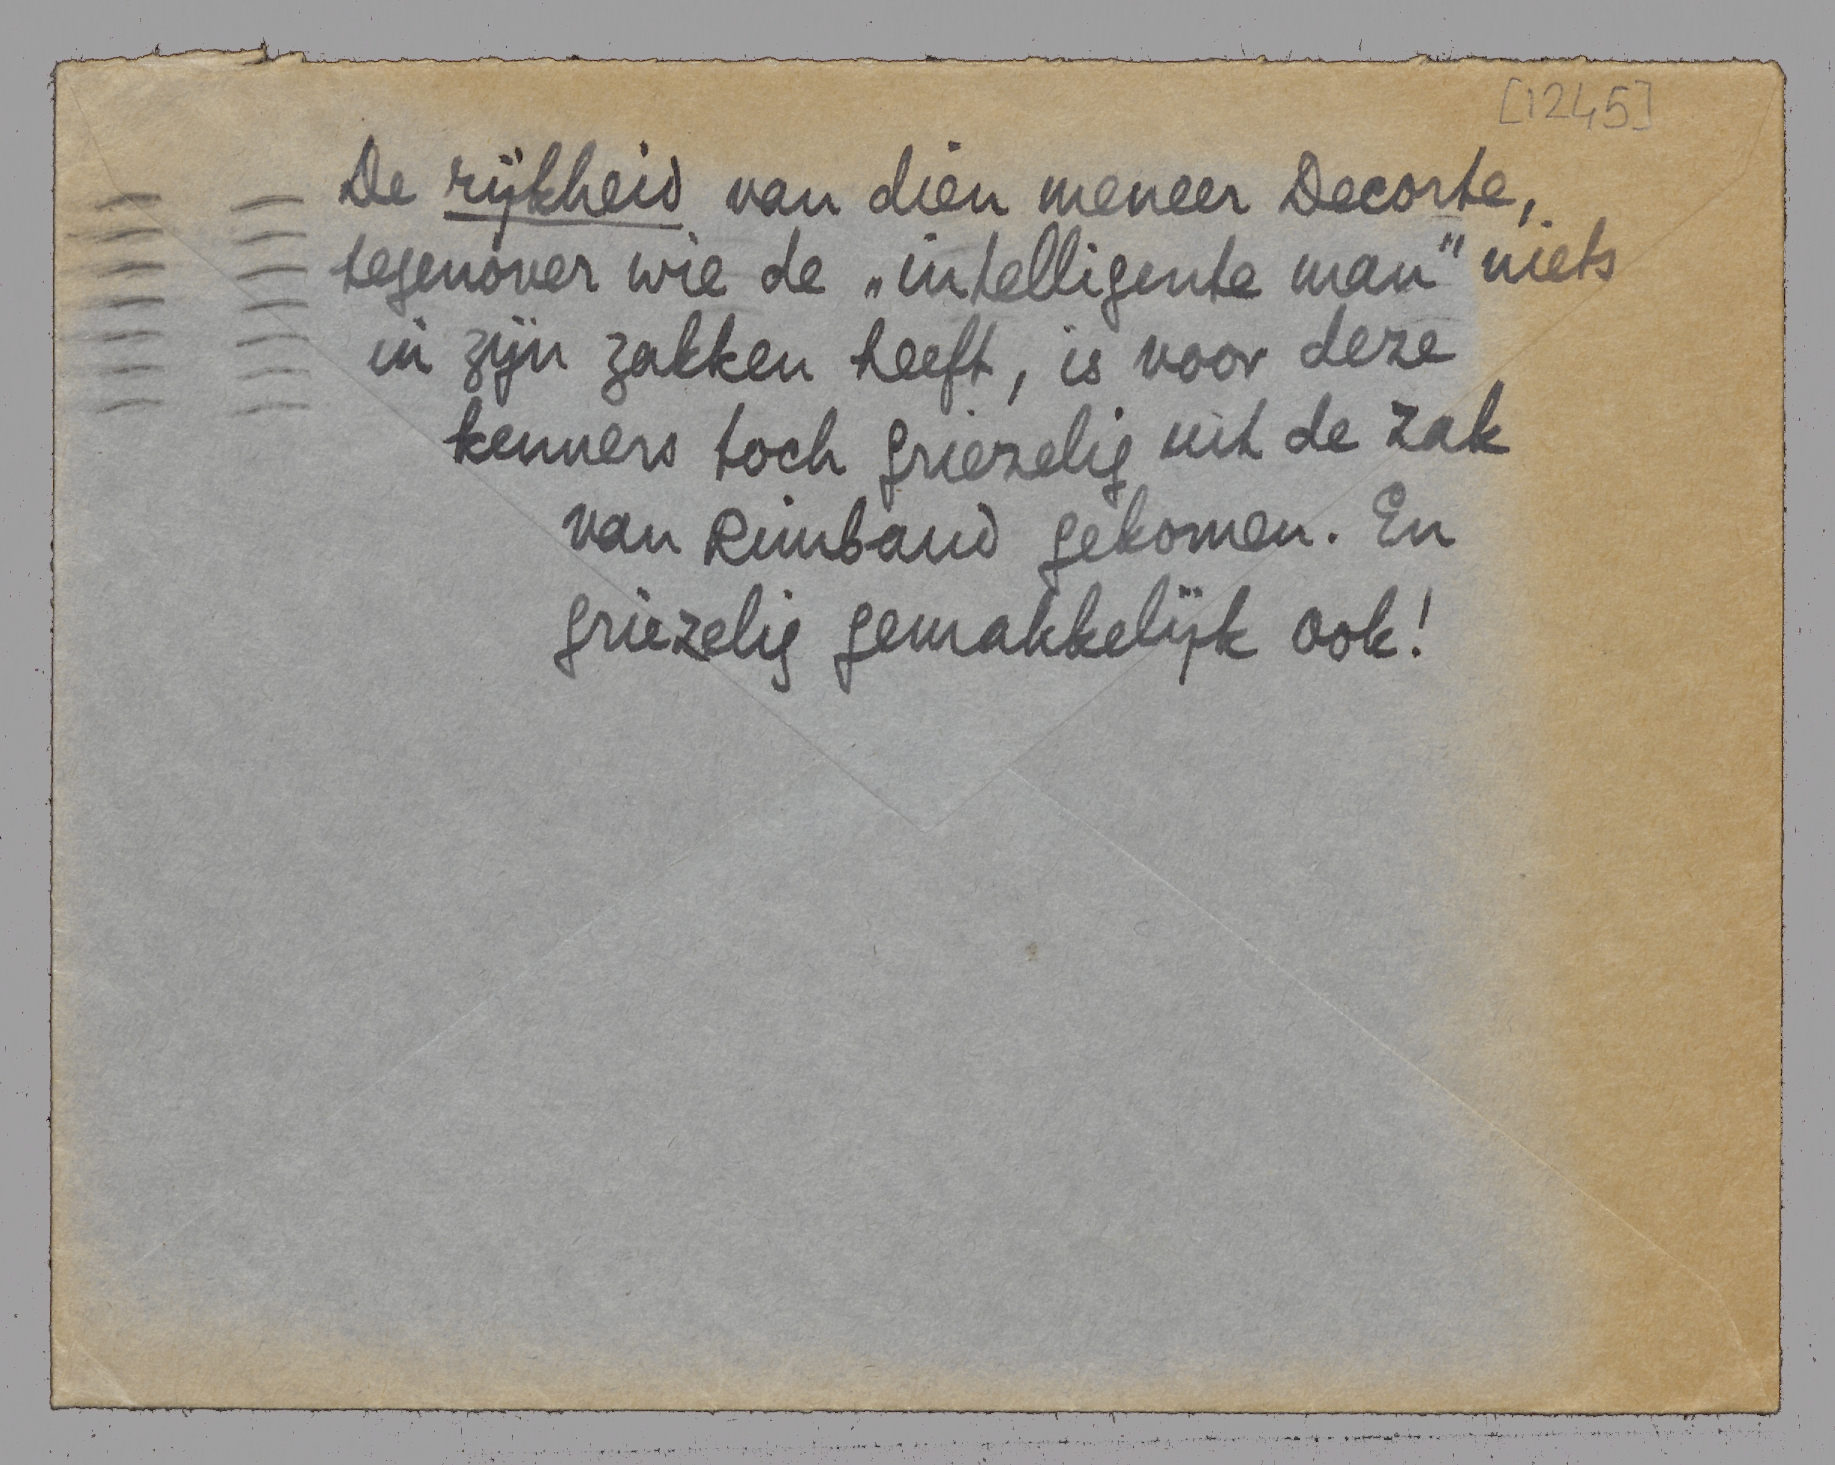 [1245]
De rijkheid van dien meneer Decorte,
tegenover wie de „intelligente man" niets
in zijn zakken heeft, is voor deze
kenners toch griezelig uit de zak
van Rimbaud gekomen. En
griezelig gemakkelijk ook!